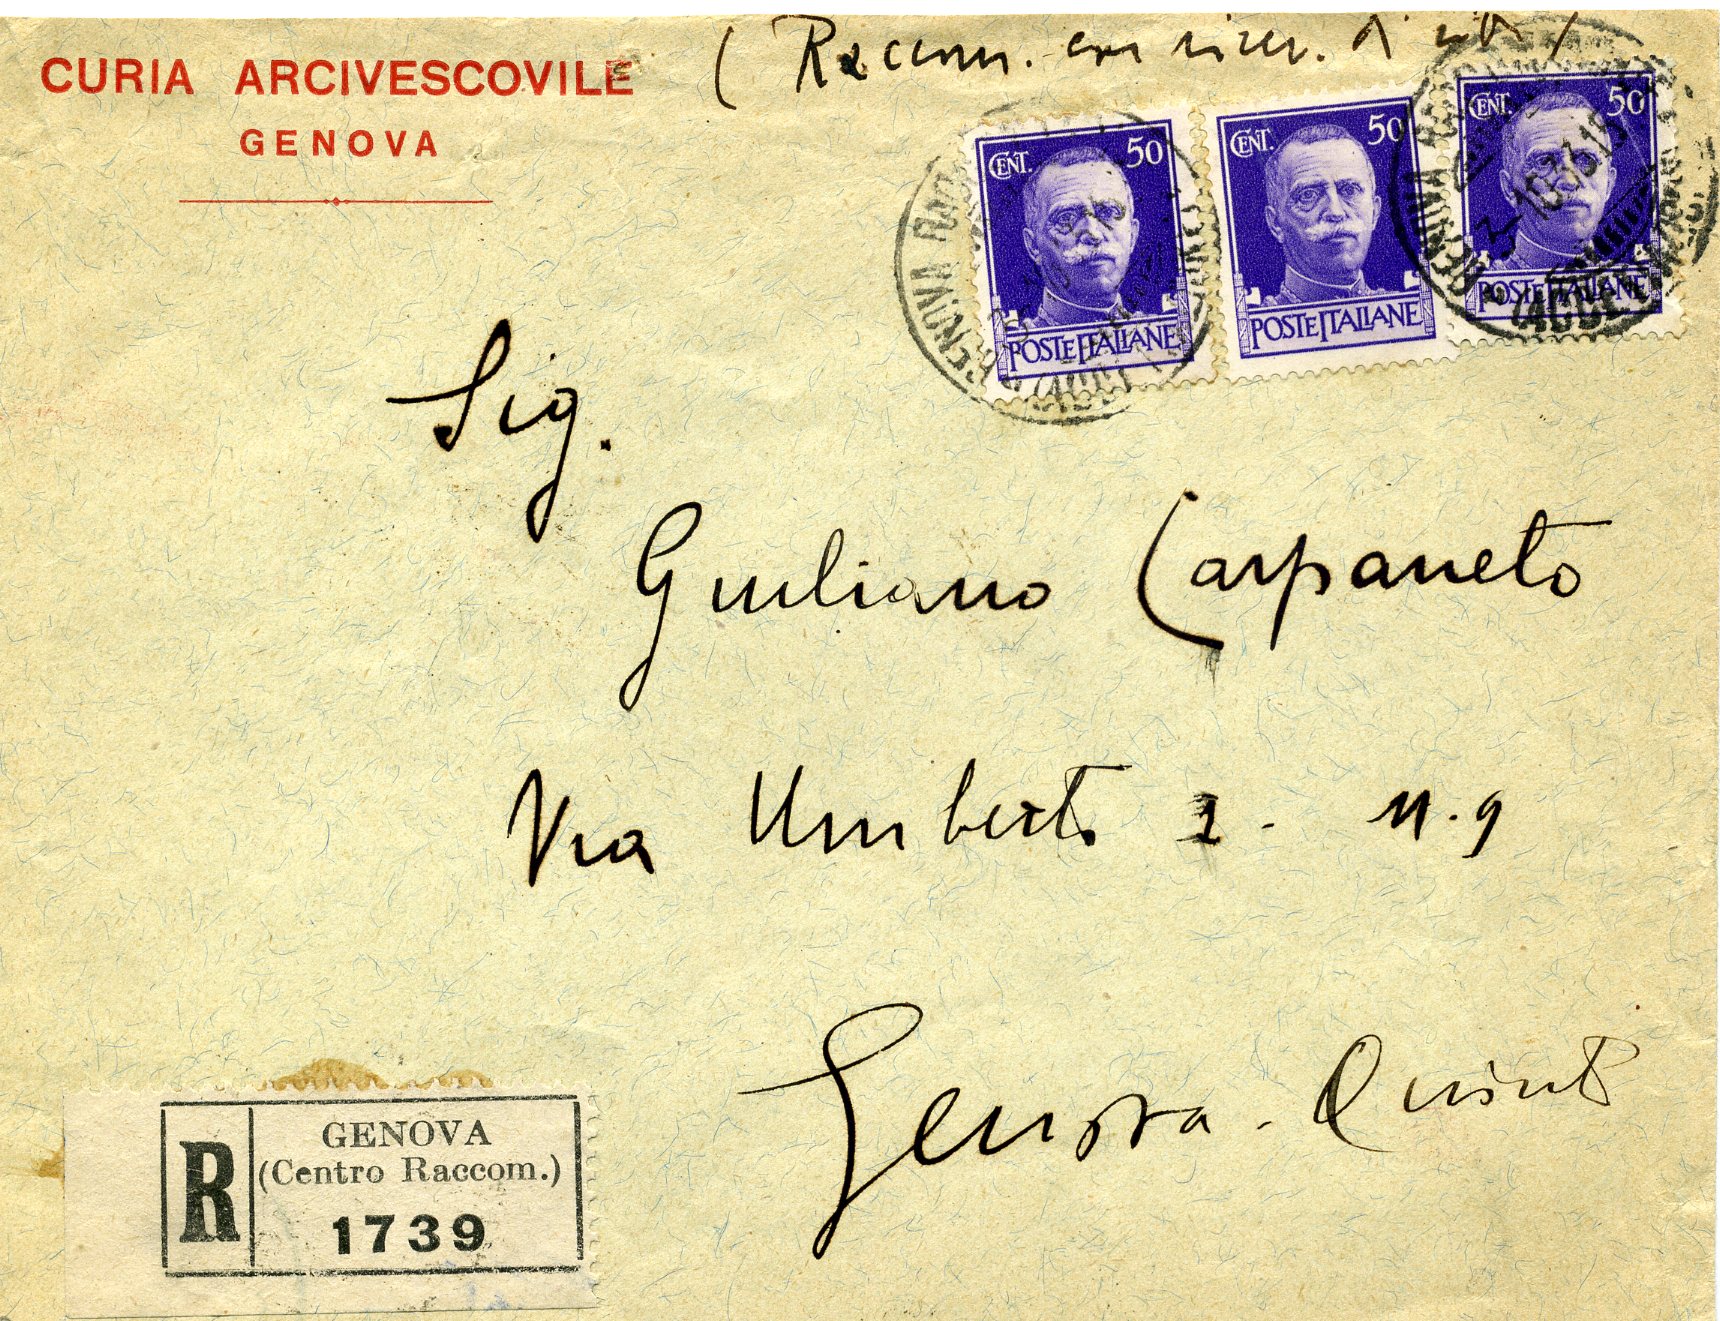 CURIA ARCIVESCOVILE
GENOVA
(Raccom. con ricev. di rit.)
CENT. 50
POSTE ITALIANE
CENT. 50
POSTE ITALIANE
CENT. 50
POSTE ITALIANE
GENOVA
GENOVA
Sig.
Giuliano Carpaneto
Via Umberto I - n. 9
Genova - Quinto
R
GENOVA
(Centro Raccom.)
1739